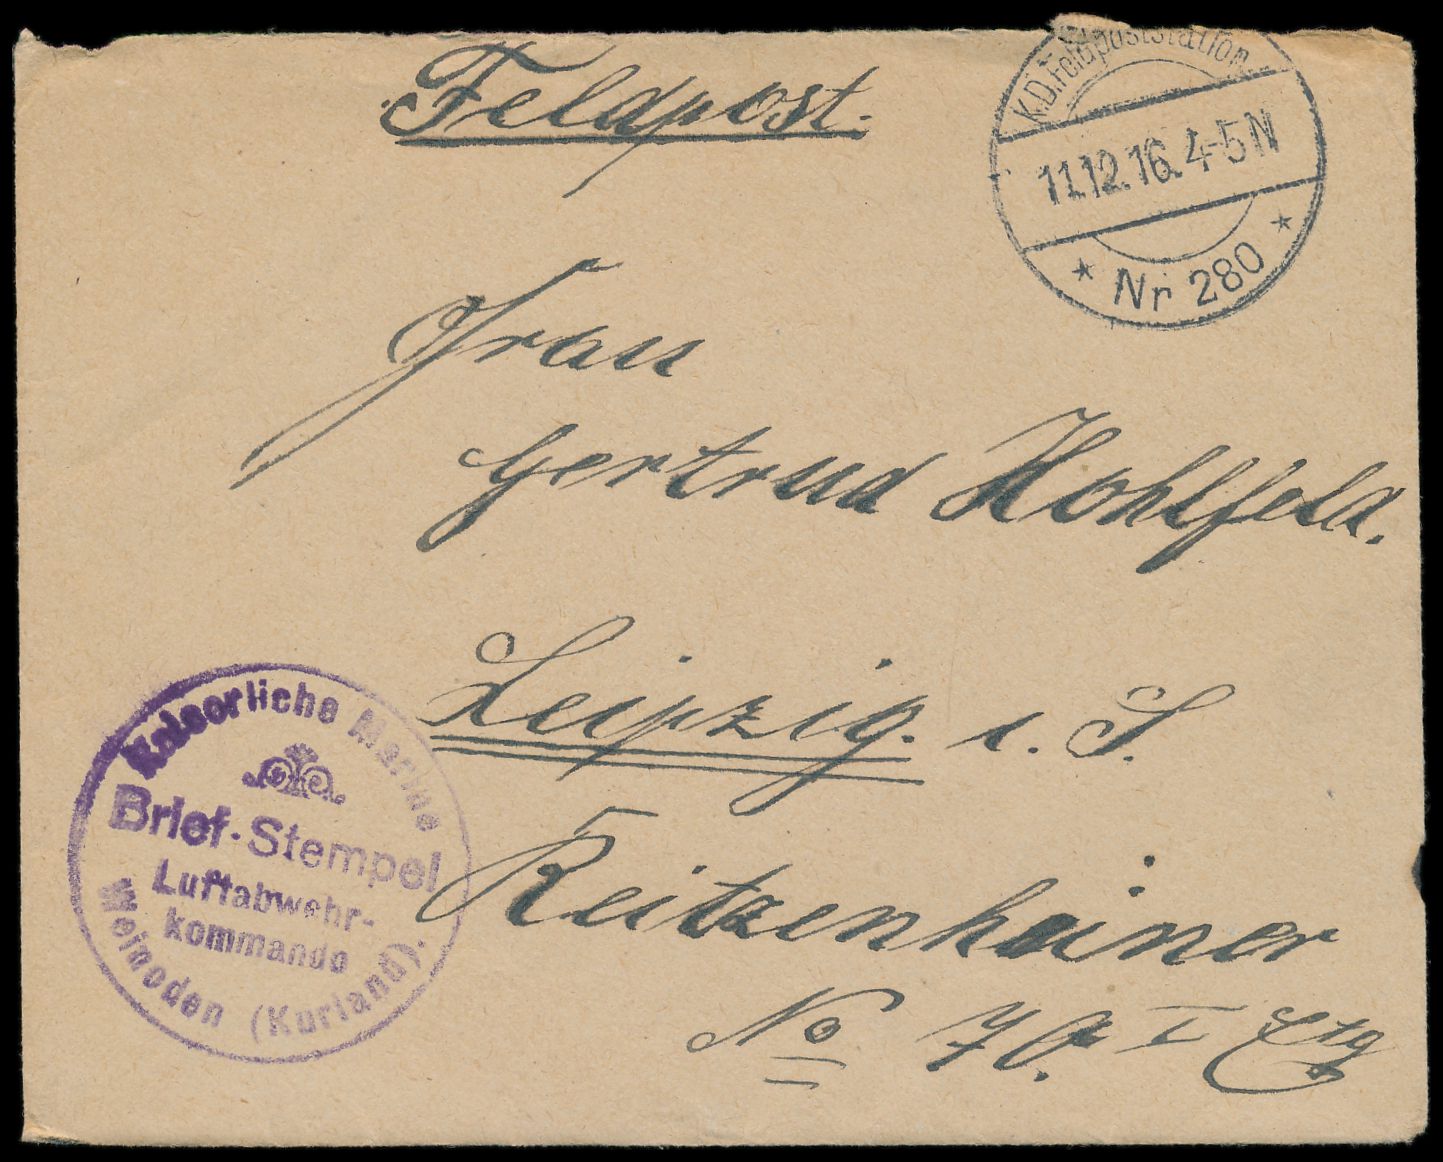 Feldpost.
K.D. Feldpoststation
11.12.16. 4-5N
* Nr 280 *
Frau
Gertrud Kohlfeld.
Leipzig. i. S.
Reitzenhainer
No 70. I Etg
Kaiserliche Marine
Brief-Stempel
Luftabwehr-
kommando
Weinoden (Kurland).